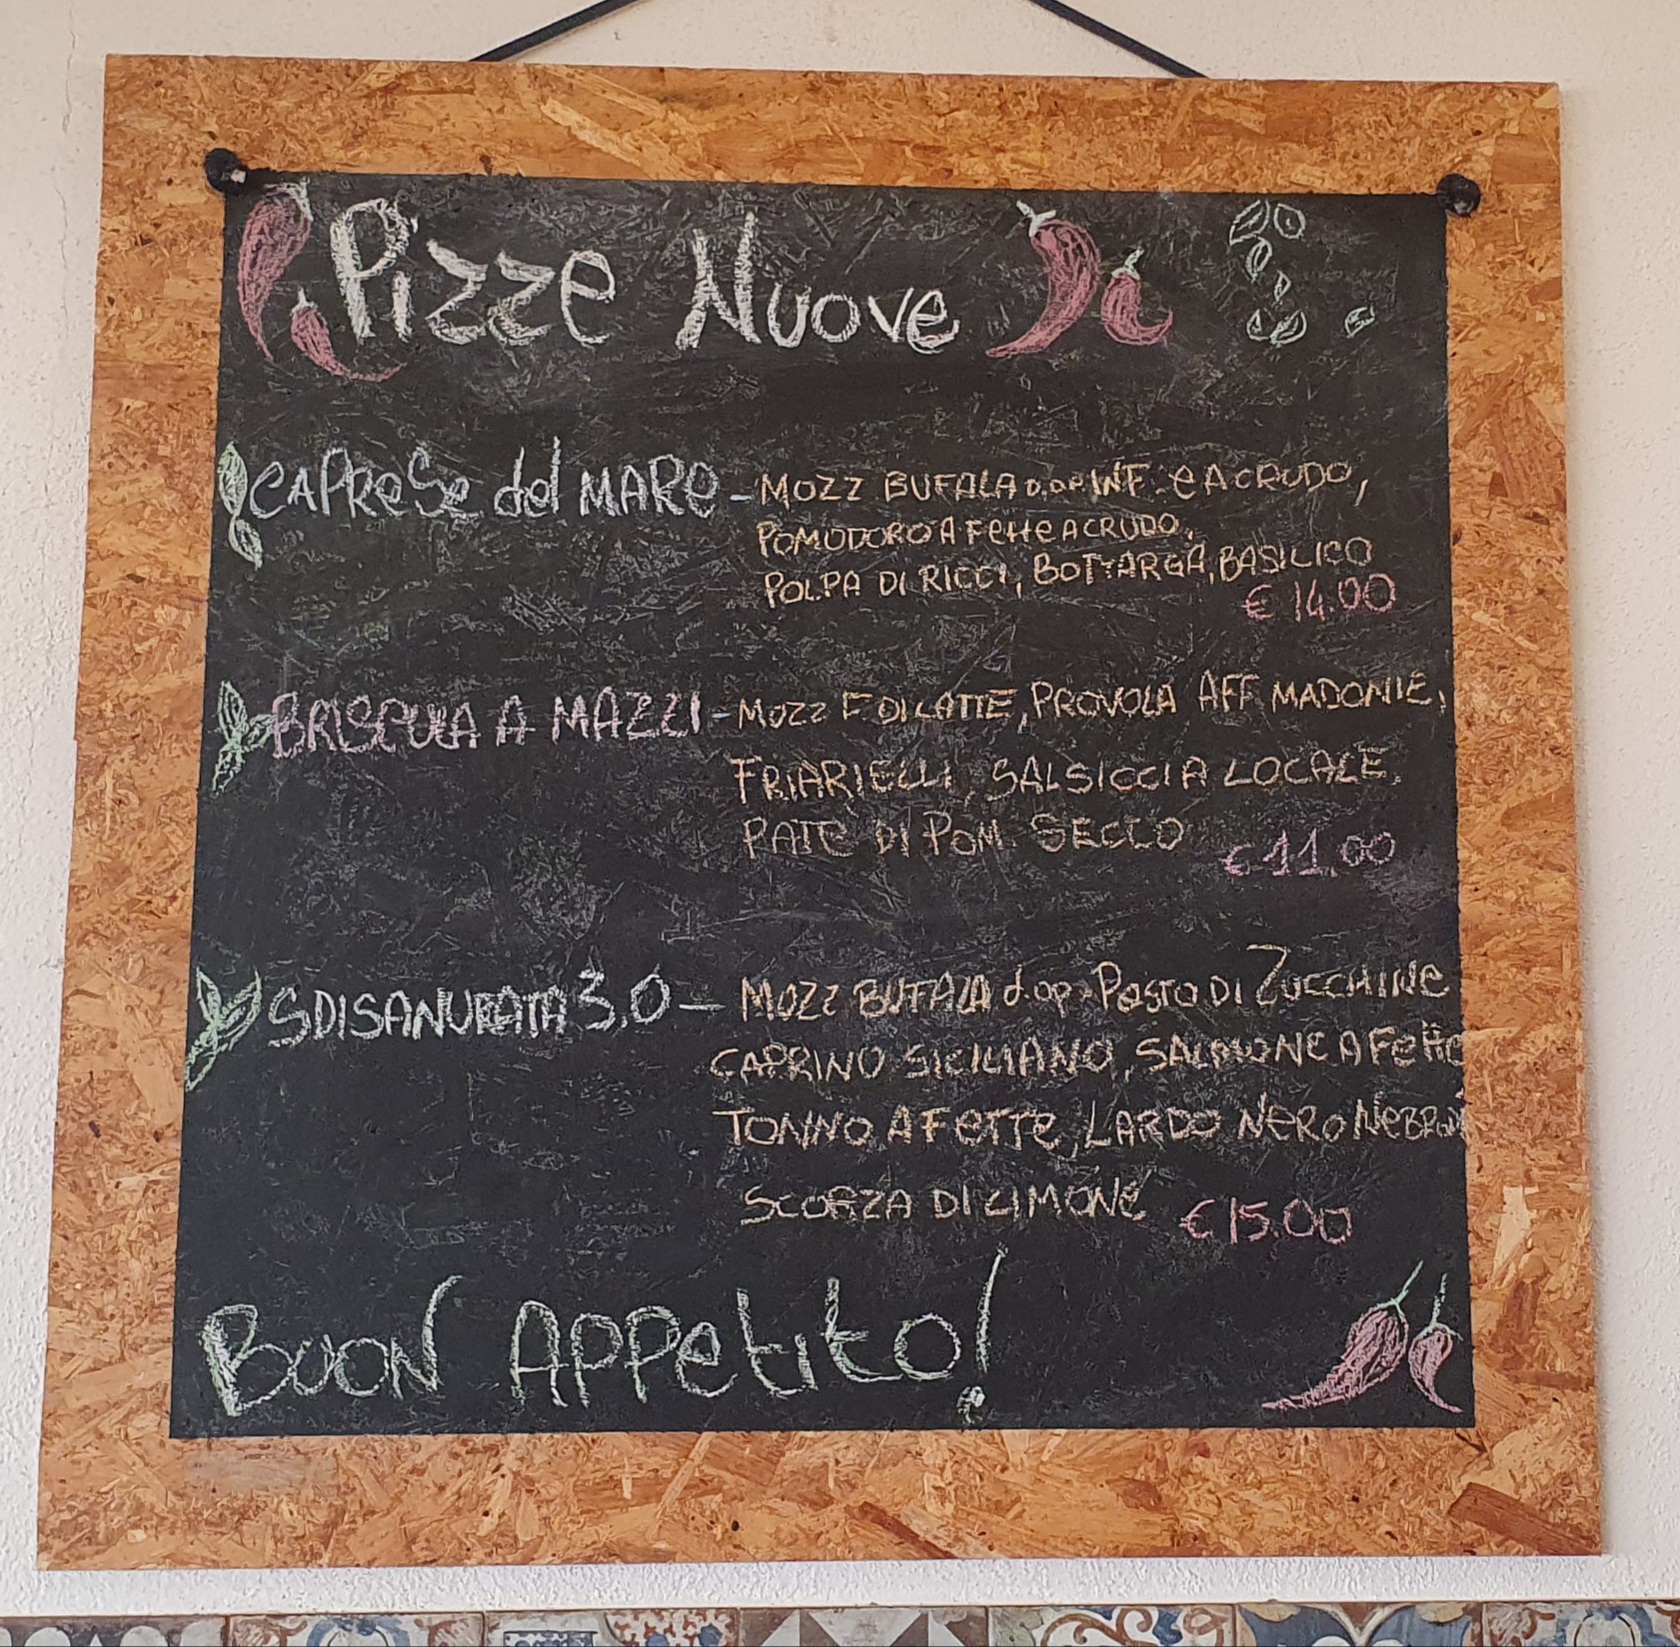 Pizze Nuove
CAPReSe del MARe - MOZZ BUFALA D.OP INF. e A CRUDO,
POMODORO A FeTTe A CRUDO,
POLPA DI RICCI, BOTTARGA, BASILICO
€ 14.00
BRISCULA A MAZZI - MOZZ F DI LATTE, PROVOLA AFF MADONIE,
FRIARIELLI, SALSICCIA LOCALE,
PATE DI POM. SECCO
€ 11,00
SDISANURATA 3.0 - MOZZ BUFALA d.op. PesTo DI ZUCCHINE
CAPRINO SICILIANO, SALMONE A FeTTe
TONNO A FeTTe, LARDO NeRo NeBRODI
SCORZA DI LIMONe € 15.00
BUON APPetito!